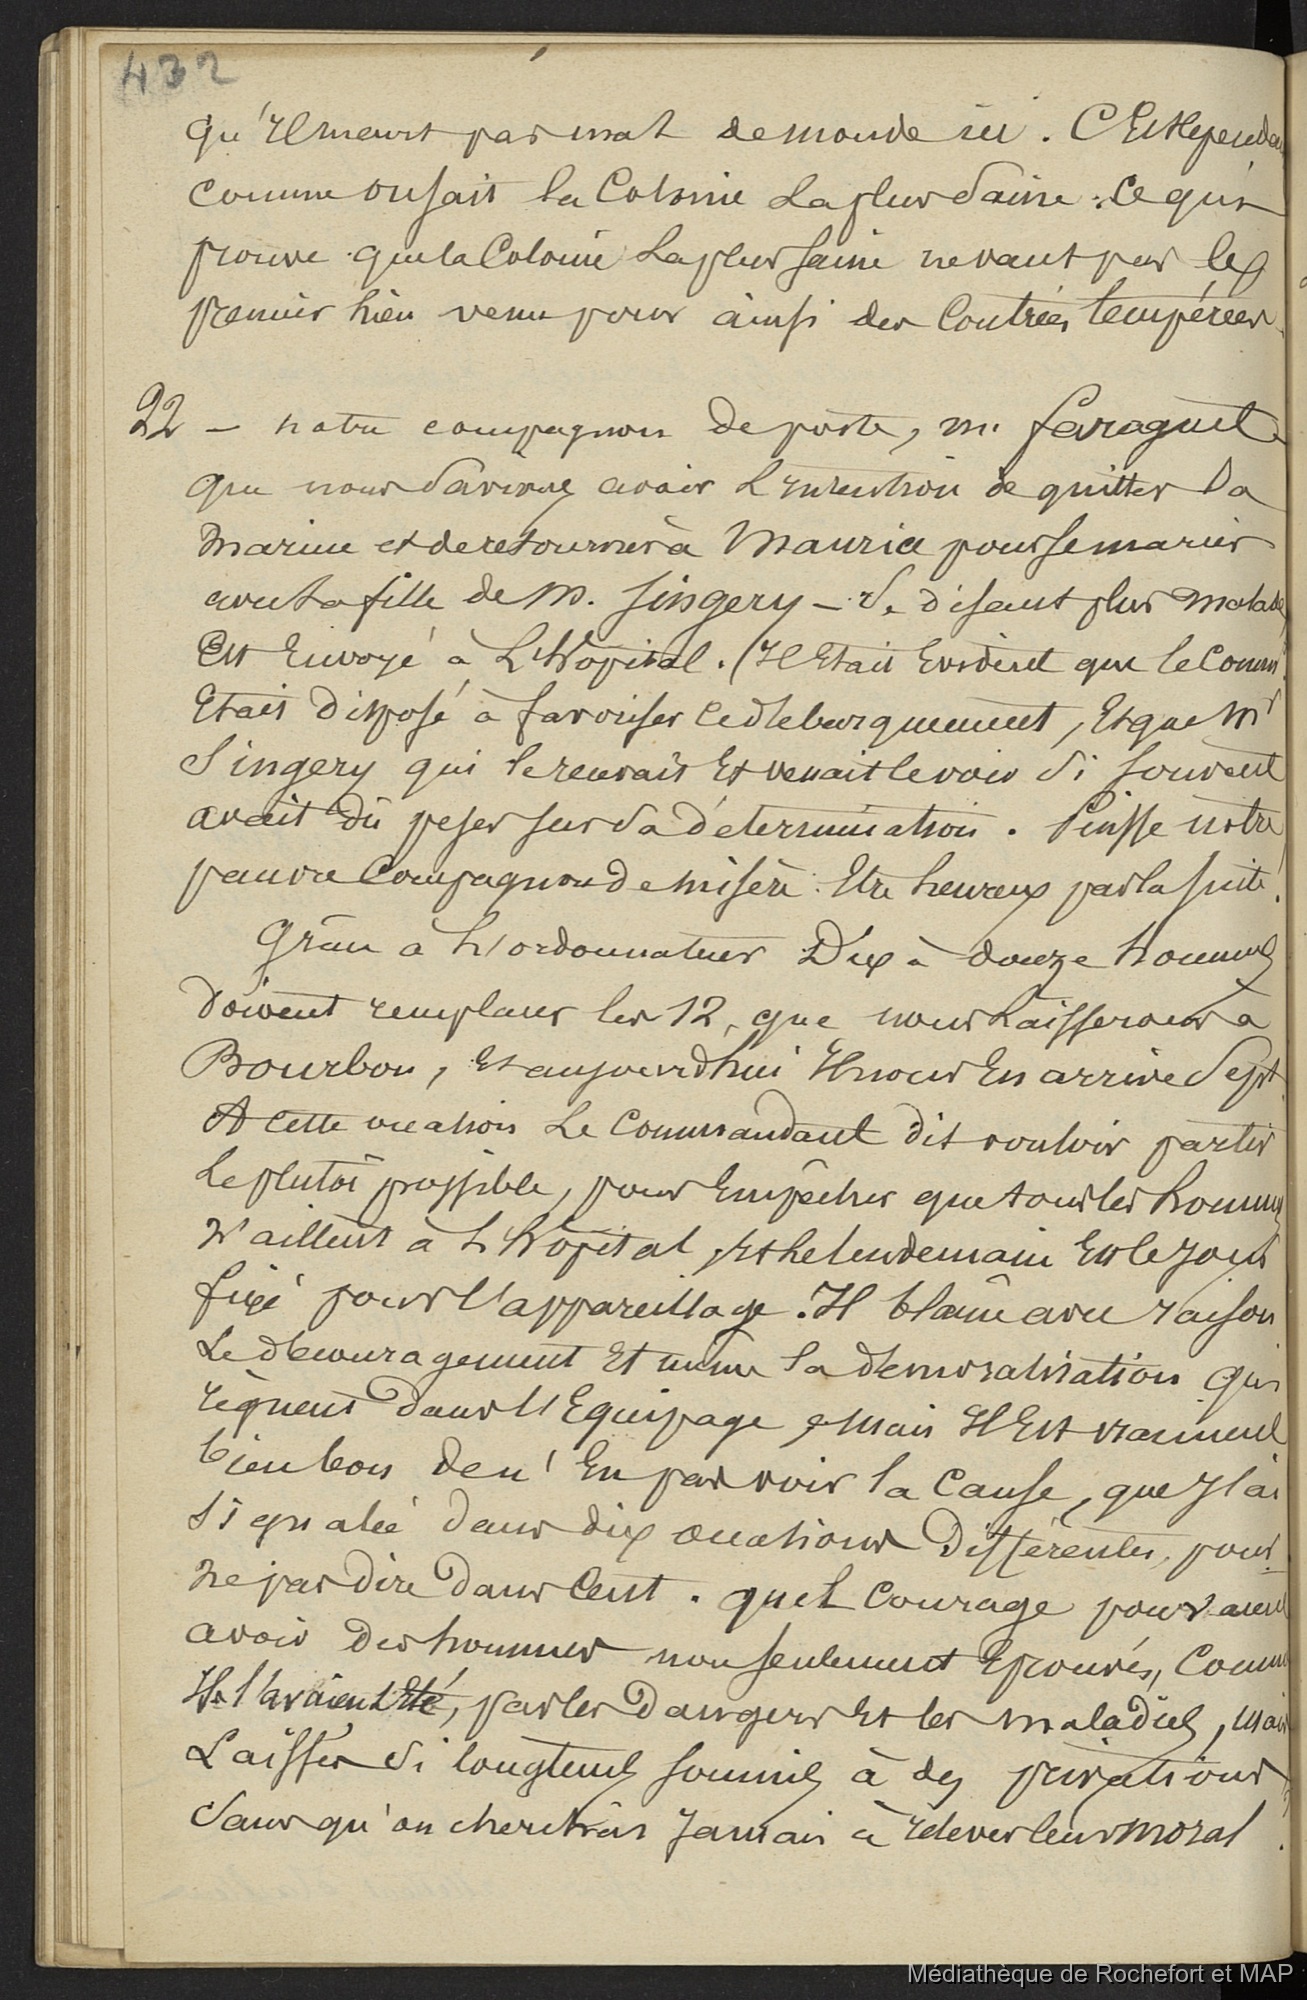 432
qu'Il meurt pas mal de monde ici. C'Est cependant
comme on sait la Colonie la plus Saine. Ce qui
prouve que la Colonie la plus saine ne vaut pas les
premier bien venu pour ainsi des Contrées tempérées.
22 — notre compagnon de poste, m. faraguet
que nous Savions avoir L'Intention de quitter la
marine et de retourner à Maurice pour se marier
avec la fille de M. Singery – Se disant plus malade,
Est Envoyé à L'hôpital. (Il Etait Evident que le Comm.t
Etait disposé à favoriser ce débarquement, Et que Mr
Singery qui le recevait Et venait le voir Si souvent
avait dû peser sur Sa détermination. Puisse notre
pauvre Compagnon de misère Etre heureux par la suite!
Grâce à L'ordonnateur Dix à douze hommes
doivent remplacer les 12, que nous Laisserons à
Bourbon, Et aujourd'hui Il nous En arrive Sept.
A cette occasion Le Commandant dit vouloir partir
Le plutôt possible, pour Empêcher que tous les hommes
n'aillent à L'hôpital, Et le lendemain Est le jour
fixé pour l'appareillage. Il blâme avec raison
Le découragement Et même la démoralisation qui
règnent dans l'Equipage, mais Il Est vraiment
bien bon de n'En pas voir la Cause, que J'ai
Signalée dans dix occasions Différentes, pour
ne pas dire dans Cent. quel Courage pouvaient
avoir des hommes non seulement Eprouvés, Comme
Ils l'avaient Eté, par les Dangers Et les maladies, mais
Laissés Si longtems soumis à des privations
Sans qu'on cherchât Jamais à relever leur moral.
Médiathèque de Rochefort et MAP